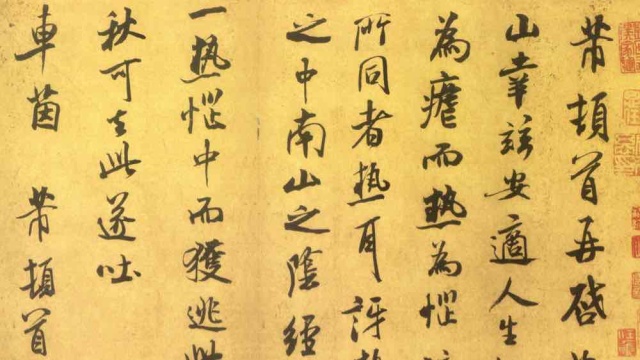 芾頓首再啓
山幸兹安適人生
為瘧而熱為惱
所同者熱耳訝
之中南山之陰經
一熱惱中而獲逃此
秋可去此遂吐
車茵 芾頓首